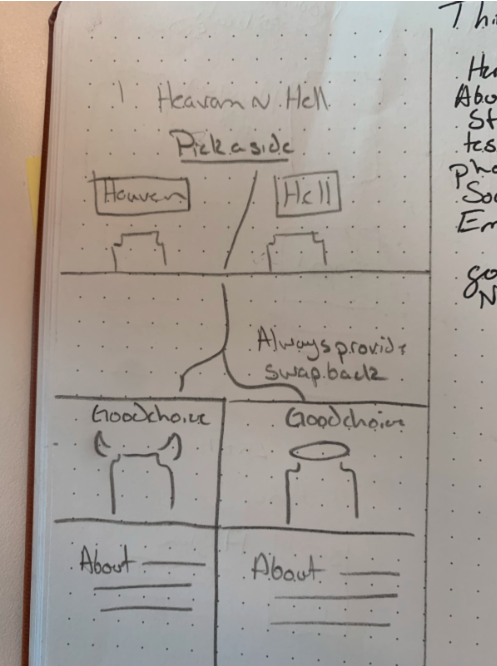 Heavan N Hell
Pick a side
Heaven
Hell
Always provide
swap back
Good choice
Good choice
About
About
Thi
Abou
St
tes
pho
Soc
Em
go
N